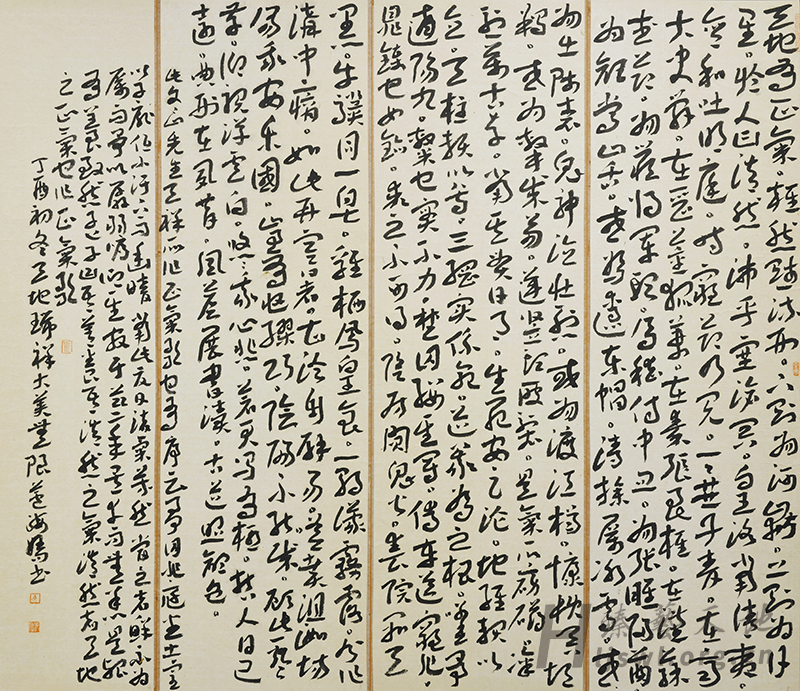 天地有正氣。雜然賦流形。下則為河嶽。上則為日
星。於人曰浩然。沛乎塞蒼冥。皇路當清夷。
含和吐明庭。時窮節乃見。一一垂丹青。在齊
太史簡。在晉董狐筆。在秦張良椎。在漢蘇
武節。為嚴將軍頭。為嵇侍中血。為張睢陽齒。
為顏常山舌。或為遼東帽。清操厲冰雪。或
為出師表。鬼神泣壯烈。或為渡江楫。慷慨吞胡
羯。或為擊賊笏。逆豎頭破裂。是氣所磅礴。凜
烈萬古存。當其貫日月。生死安足論。地維賴以
立。天柱賴以尊。三綱實係命。道義為之根。嗟予
遘陽九。隸也實不力。楚囚纓其冠。傳車送窮北。
鼎鑊甘如飴。求之不可得。陰房闃鬼火。春院閟天
黑。牛驥同一皂。雞棲鳳皇食。一朝濛霧露。分作
溝中瘠。如此再寒暑。百沴自辟易。嗟哉沮洳場。
為我安樂國。豈有他繆巧。陰陽不能賊。顧此耿耿
在。仰視浮雲白。悠悠我心悲。蒼天曷有極。哲人日已
遠。典刑在夙昔。風簷展書讀。古道照顏色。
此文山先生天祥所作正氣歌也有序云予囚北庭坐土室
以孱弱俯仰其間於茲二年矣
孟子曰吾善養吾浩然之氣浩然者天地
之正氣也作正氣歌
丁酉初冬天地瑞祥大美無限蓮海書